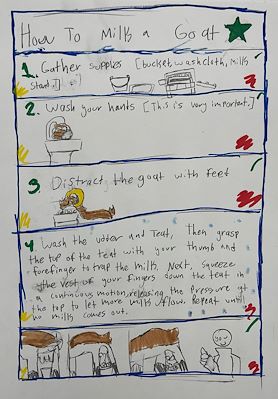 How To Milk a Goat
1. Gather supplies [bucket, washcloth, milk
stand.]
2. Wash your hands [This is very important.]
3. Distract the goat with feed
4. Wash the udder and Teat, Then grasp
the top of the teat with your thumb and
forefinger to trap the milk. Next, squeeze
the rest of your fingers down the teat in
a continuous motion, releasing the pressure at
the top to let more milk flow. Repeat until
no milk comes out.